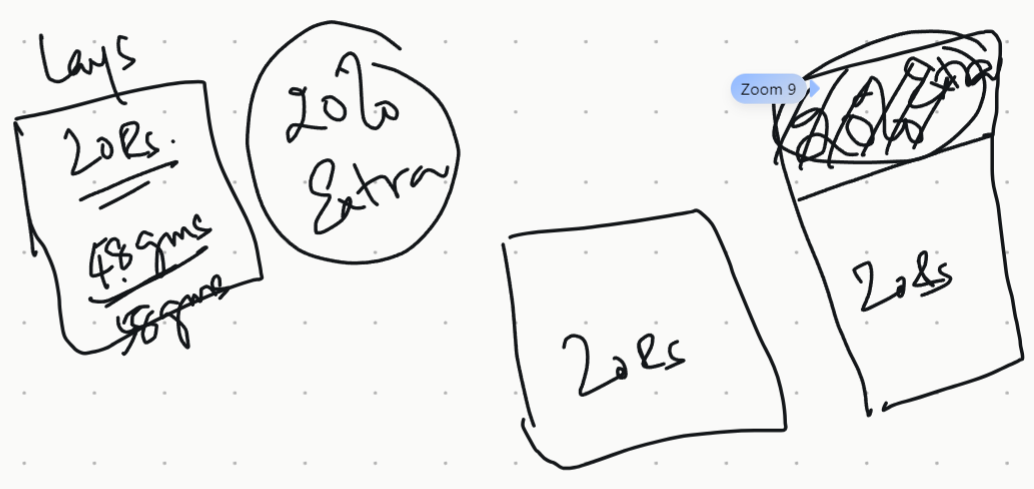 Lays
20Rs.
48gms
58gms
20%
Extra
20Rs
Zoom 9
20% Extra
20Rs